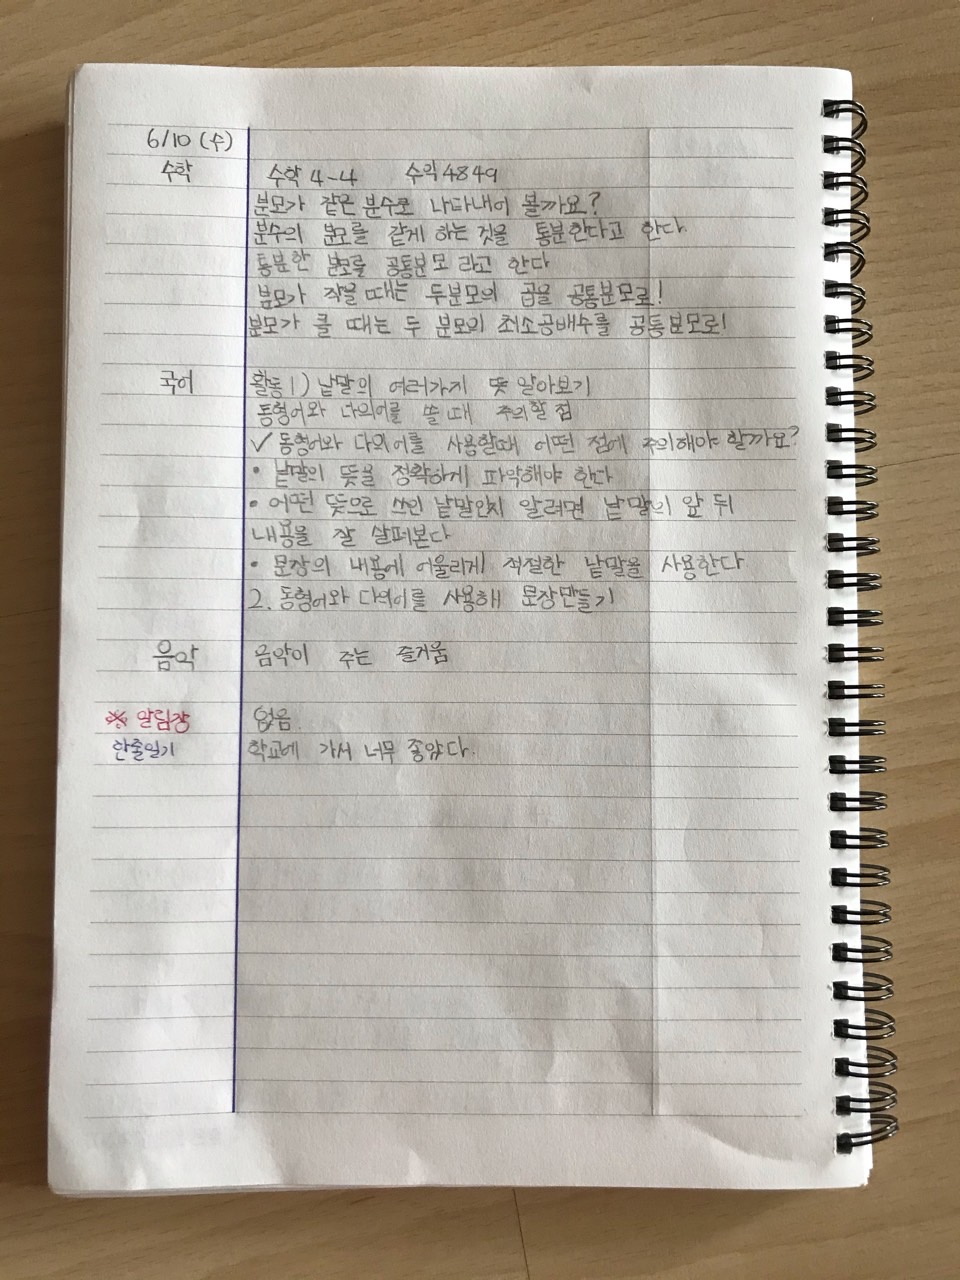 6/10 (수)
수학 수학 4-4 수익 48 49
분모가 같은 분수로 나타내어 볼까요?
분수의 분모를 같게 하는 것을 통분한다고 한다
통분한 분모를 공통분모 라고 한다
분모가 작을 때는 두분모의 곱을 공통분모로!
분모가 클 때는 두 분모의 최소공배수를 공통분모로!
국어 활동 1) 낱말의 여러가지 뜻 알아보기
동형어와 다의어를 쓸 때 주의할 점
✓ 동형어와 다의어를 사용할때 어떤 점에 주의해야 할까요?
• 낱말의 뜻을 정확하게 파악해야 한다
• 어떤 뜻으로 쓰인 낱말인지 알려면 낱말의 앞 뒤
내용을 잘 살펴본다
• 문장의 내용에 어울리게 적절한 낱말을 사용한다
2. 동형어와 다의어를 사용해 문장만들기
음악 음악이 주는 즐거움
※ 알림장 없음.
한줄일기 학교에 가서 너무 좋았다.